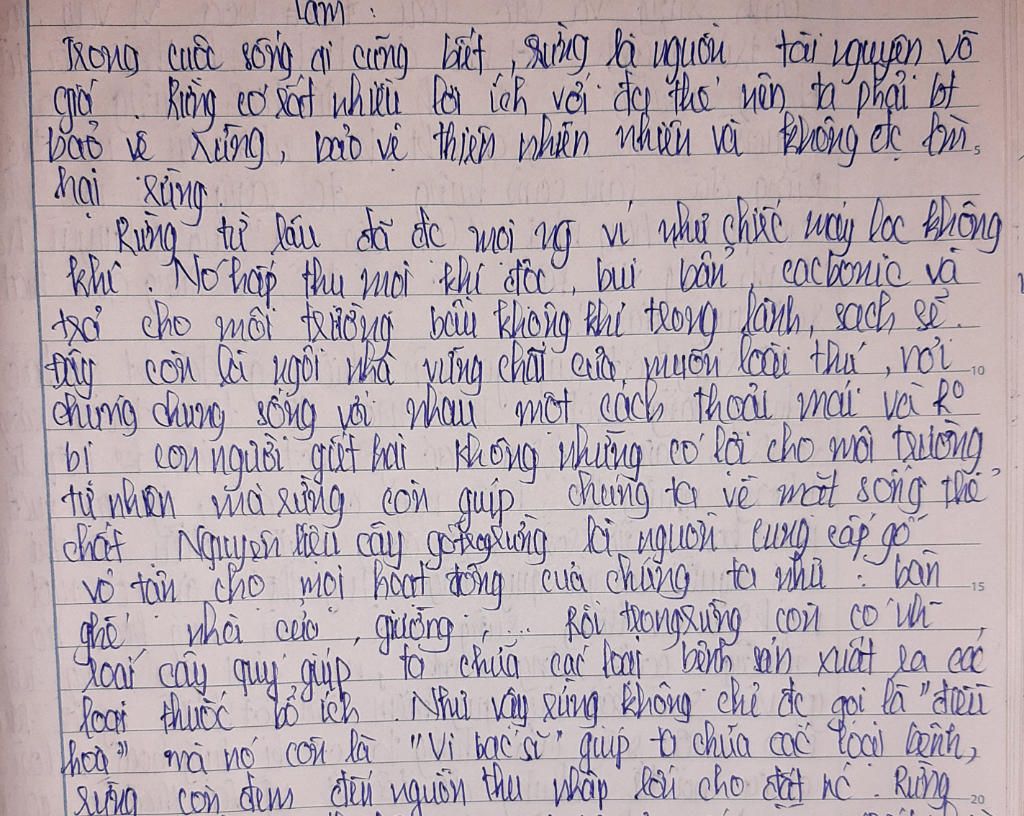 Làm :
Trong cuộc sống ai cũng biết, rừng là nguồn tài nguyên vô
giá. Rừng có rất nhiều lợi ích với đs thế nên ta phải bt
bảo vệ rừng, bảo vệ thiên nhiên nhiên và không đc làm
hại rừng.
Rừng từ lâu đã đc mọi ng ví như chiếc máy lọc không
khí. Nó hấp thu mọi khí độc, bụi bẩn, cacbonic và
trả cho môi trường bầu không khí trong lành, sạch sẽ.
Đây còn là ngôi nhà vững chãi của muôn loài thú, nơi
chúng chung sống với nhau một cách thoải mái và ko
bị con người giết hại. Không những có lợi cho môi trường
tự nhiên mà rừng còn guíp chúng ta về mặt sống thể
chất. Nguyên liệu cây gỗ trong rừng là nguồn cung cấp gỗ
vô tận cho mọi hoạt động của chúng ta như : bàn
ghế, nhà cửa, giường, ... Rồi trong rừng còn có nh~
loại cây quý giúp ta chữa các loại bệnh sản xuất ra các
loại thuốc bổ ích. Như vậy rừng không chỉ đc gọi là "điều
hoà" mà nó còn là "vị bác sĩ" guíp ta chữa các loại bệnh,
rừng còn đem đến nguồn thu nhập lớn cho đất nc. Rừng